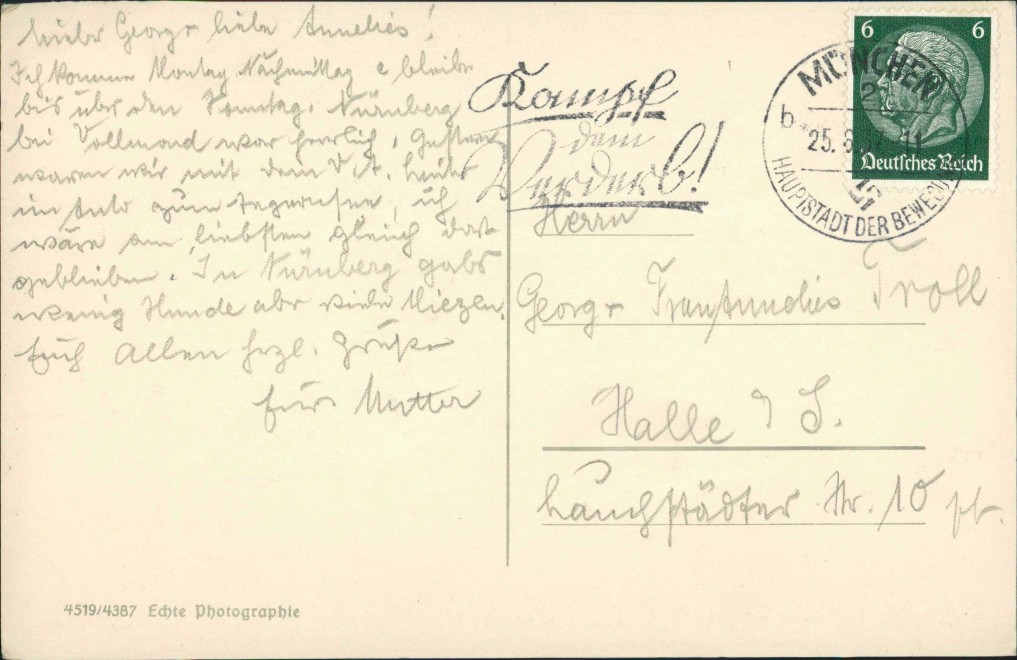 Lieber Georg, liebe Annelies!
Ich komme Montag Nachmittag & bleibe
bis über den Sonntag. Nürnberg
bei Vollmond war herrlich, gestern
waren wir mit dem
im Auto zum Tegernsee, ich
wäre am liebsten gleich dort
geblieben. In Nürnberg gabs
wenig Hunde aber viele Miezen.
Euch Allen hrzl. Grüße
Eure Mutter
4519/4387 Echte Photographie
Kampf
dem
Verderb!
MÜNCHEN
2
b
25. 6. 11
HAUPTSTADT DER BEWEGUNG
6 6
Deutsches Reich
Herrn
Georg & Frau Annelies Troll
Halle a/S.
Lauchstädter Str. 10 pt.